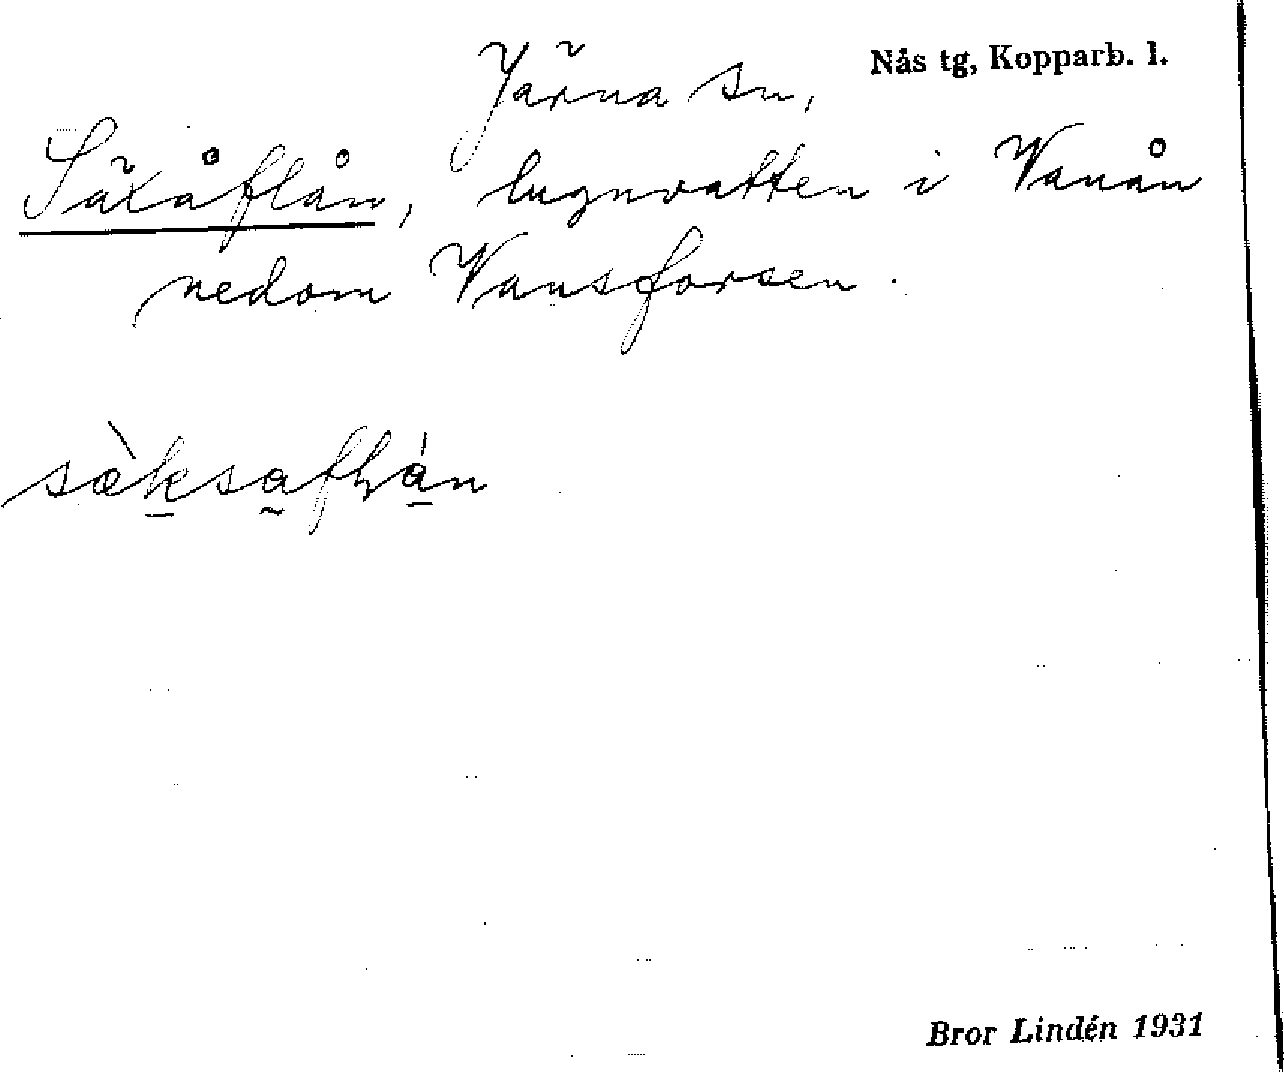 Järna sn, Nås tg, Kopparb. l.
Säxåflån, lugnvatten i Vanån
nedom Vansforsen.
Bror Lindén 1931